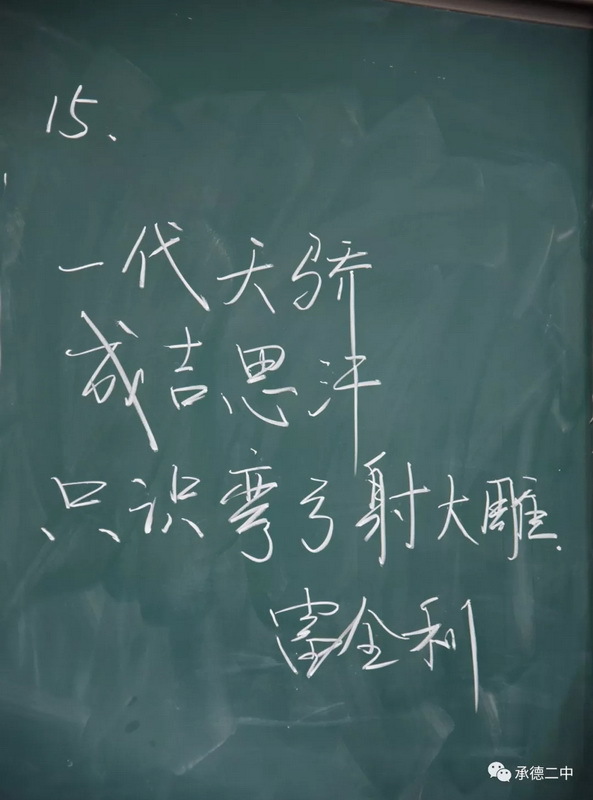 15、
一代天骄
成吉思汗
只识弯弓射大雕.
富全利
承德二中